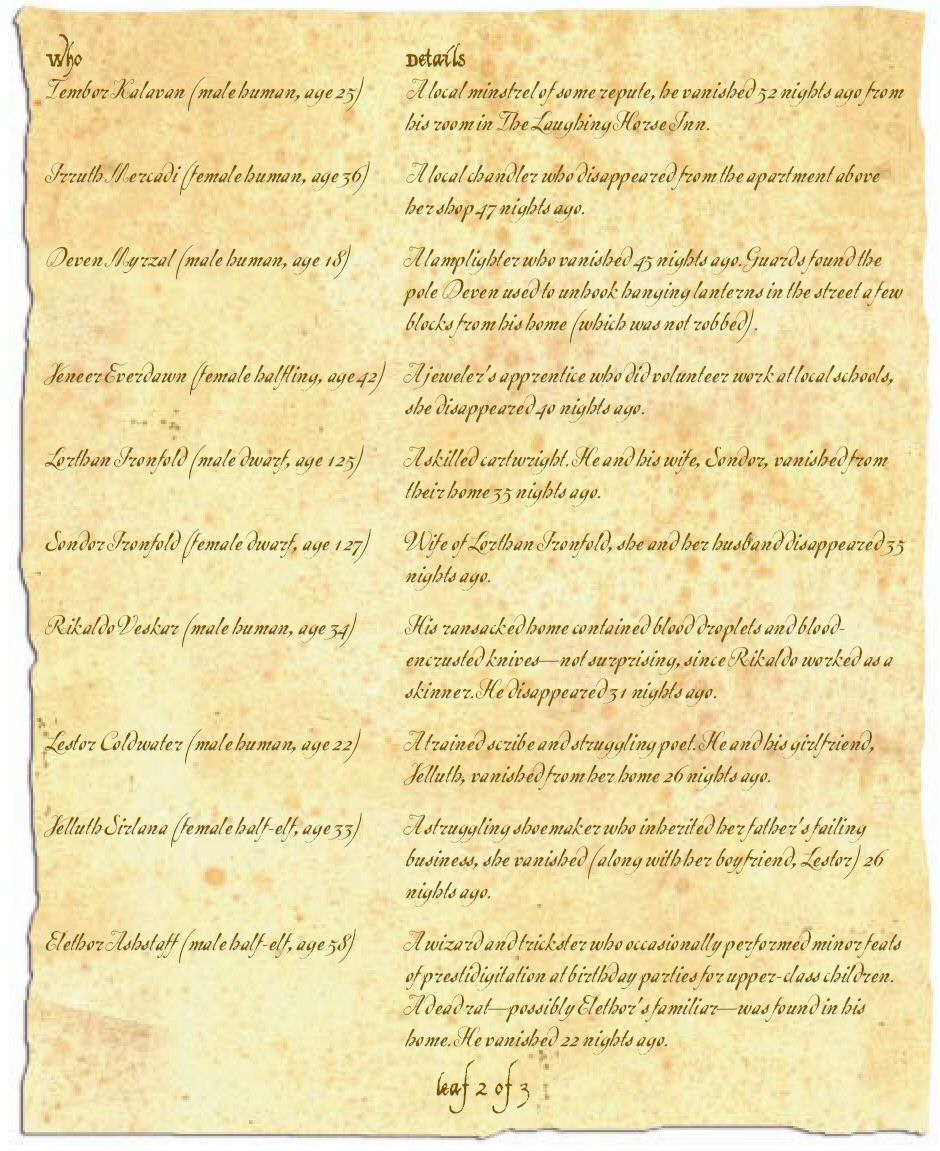 Who Details
Tembor Kalavan (male human, age 25) A local minstrel of some repute, he vanished 52 nights ago from
his room in The Laughing Horse Inn.
Irruth Mercadi (female human, age 36) A local chandler who disappeared from the apartment above
her shop 47 nights ago.
Deven Myrzal (male human, age 18) A lamplighter who vanished 45 nights ago. Guards found the
pole Deven used to unhook hanging lanterns in the street a few
blocks from his home (which was not robbed).
Jeneer Everdawn (female halfling, age 42) A jeweler's apprentice who did volunteer work at local schools,
she disappeared 40 nights ago.
Lorthan Ironfold (male dwarf, age 125) A skilled cartwright. He and his wife, Sondor, vanished from
their home 35 nights ago.
Sondor Ironfold (female dwarf, age 127) Wife of Lorthan Ironfold, she and her husband disappeared 35
nights ago.
Rikaldo Veskar (male human, age 34) His ransacked home contained blood droplets and blood-
encrusted knives—not surprising, since Rikaldo worked as a
skinner. He disappeared 31 nights ago.
Lestor Coldwater (male human, age 22) A trained scribe and struggling poet. He and his girlfriend,
Jelluth, vanished from her home 26 nights ago.
Jelluth Sirlana (female half-elf, age 33) A struggling shoemaker who inherited her father's failing
business, she vanished (along with her boyfriend, Lestor) 26
nights ago.
Elethor Ashstaff (male half-elf, age 58) A wizard and trickster who occasionally performed minor feats
of prestidigitation at birthday parties for upper-class children.
A dead rat—possibly Elethor's familiar—was found in his
home. He vanished 22 nights ago.
leaf 2 of 3